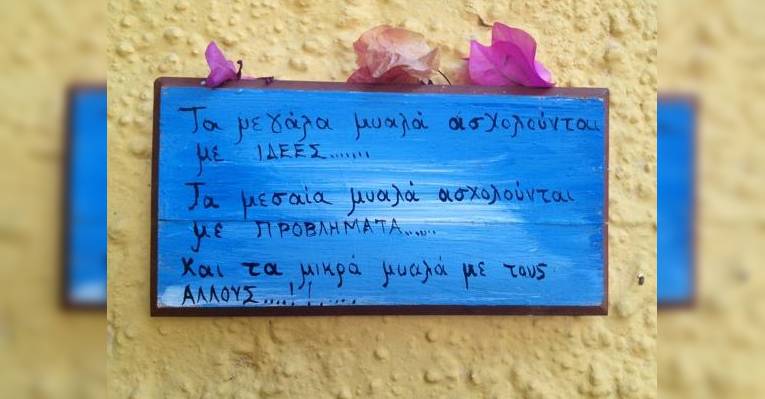 Τα μεγάλα μυαλά ασχολούνται
με ΙΔΕΕΣ.......
Τα μεσαία μυαλά ασχολούνται
με ΠΡΟΒΛΗΜΑΤΑ......
Και τα μικρά μυαλά με τους
ΑΛΛΟΥΣ.....!.!.....